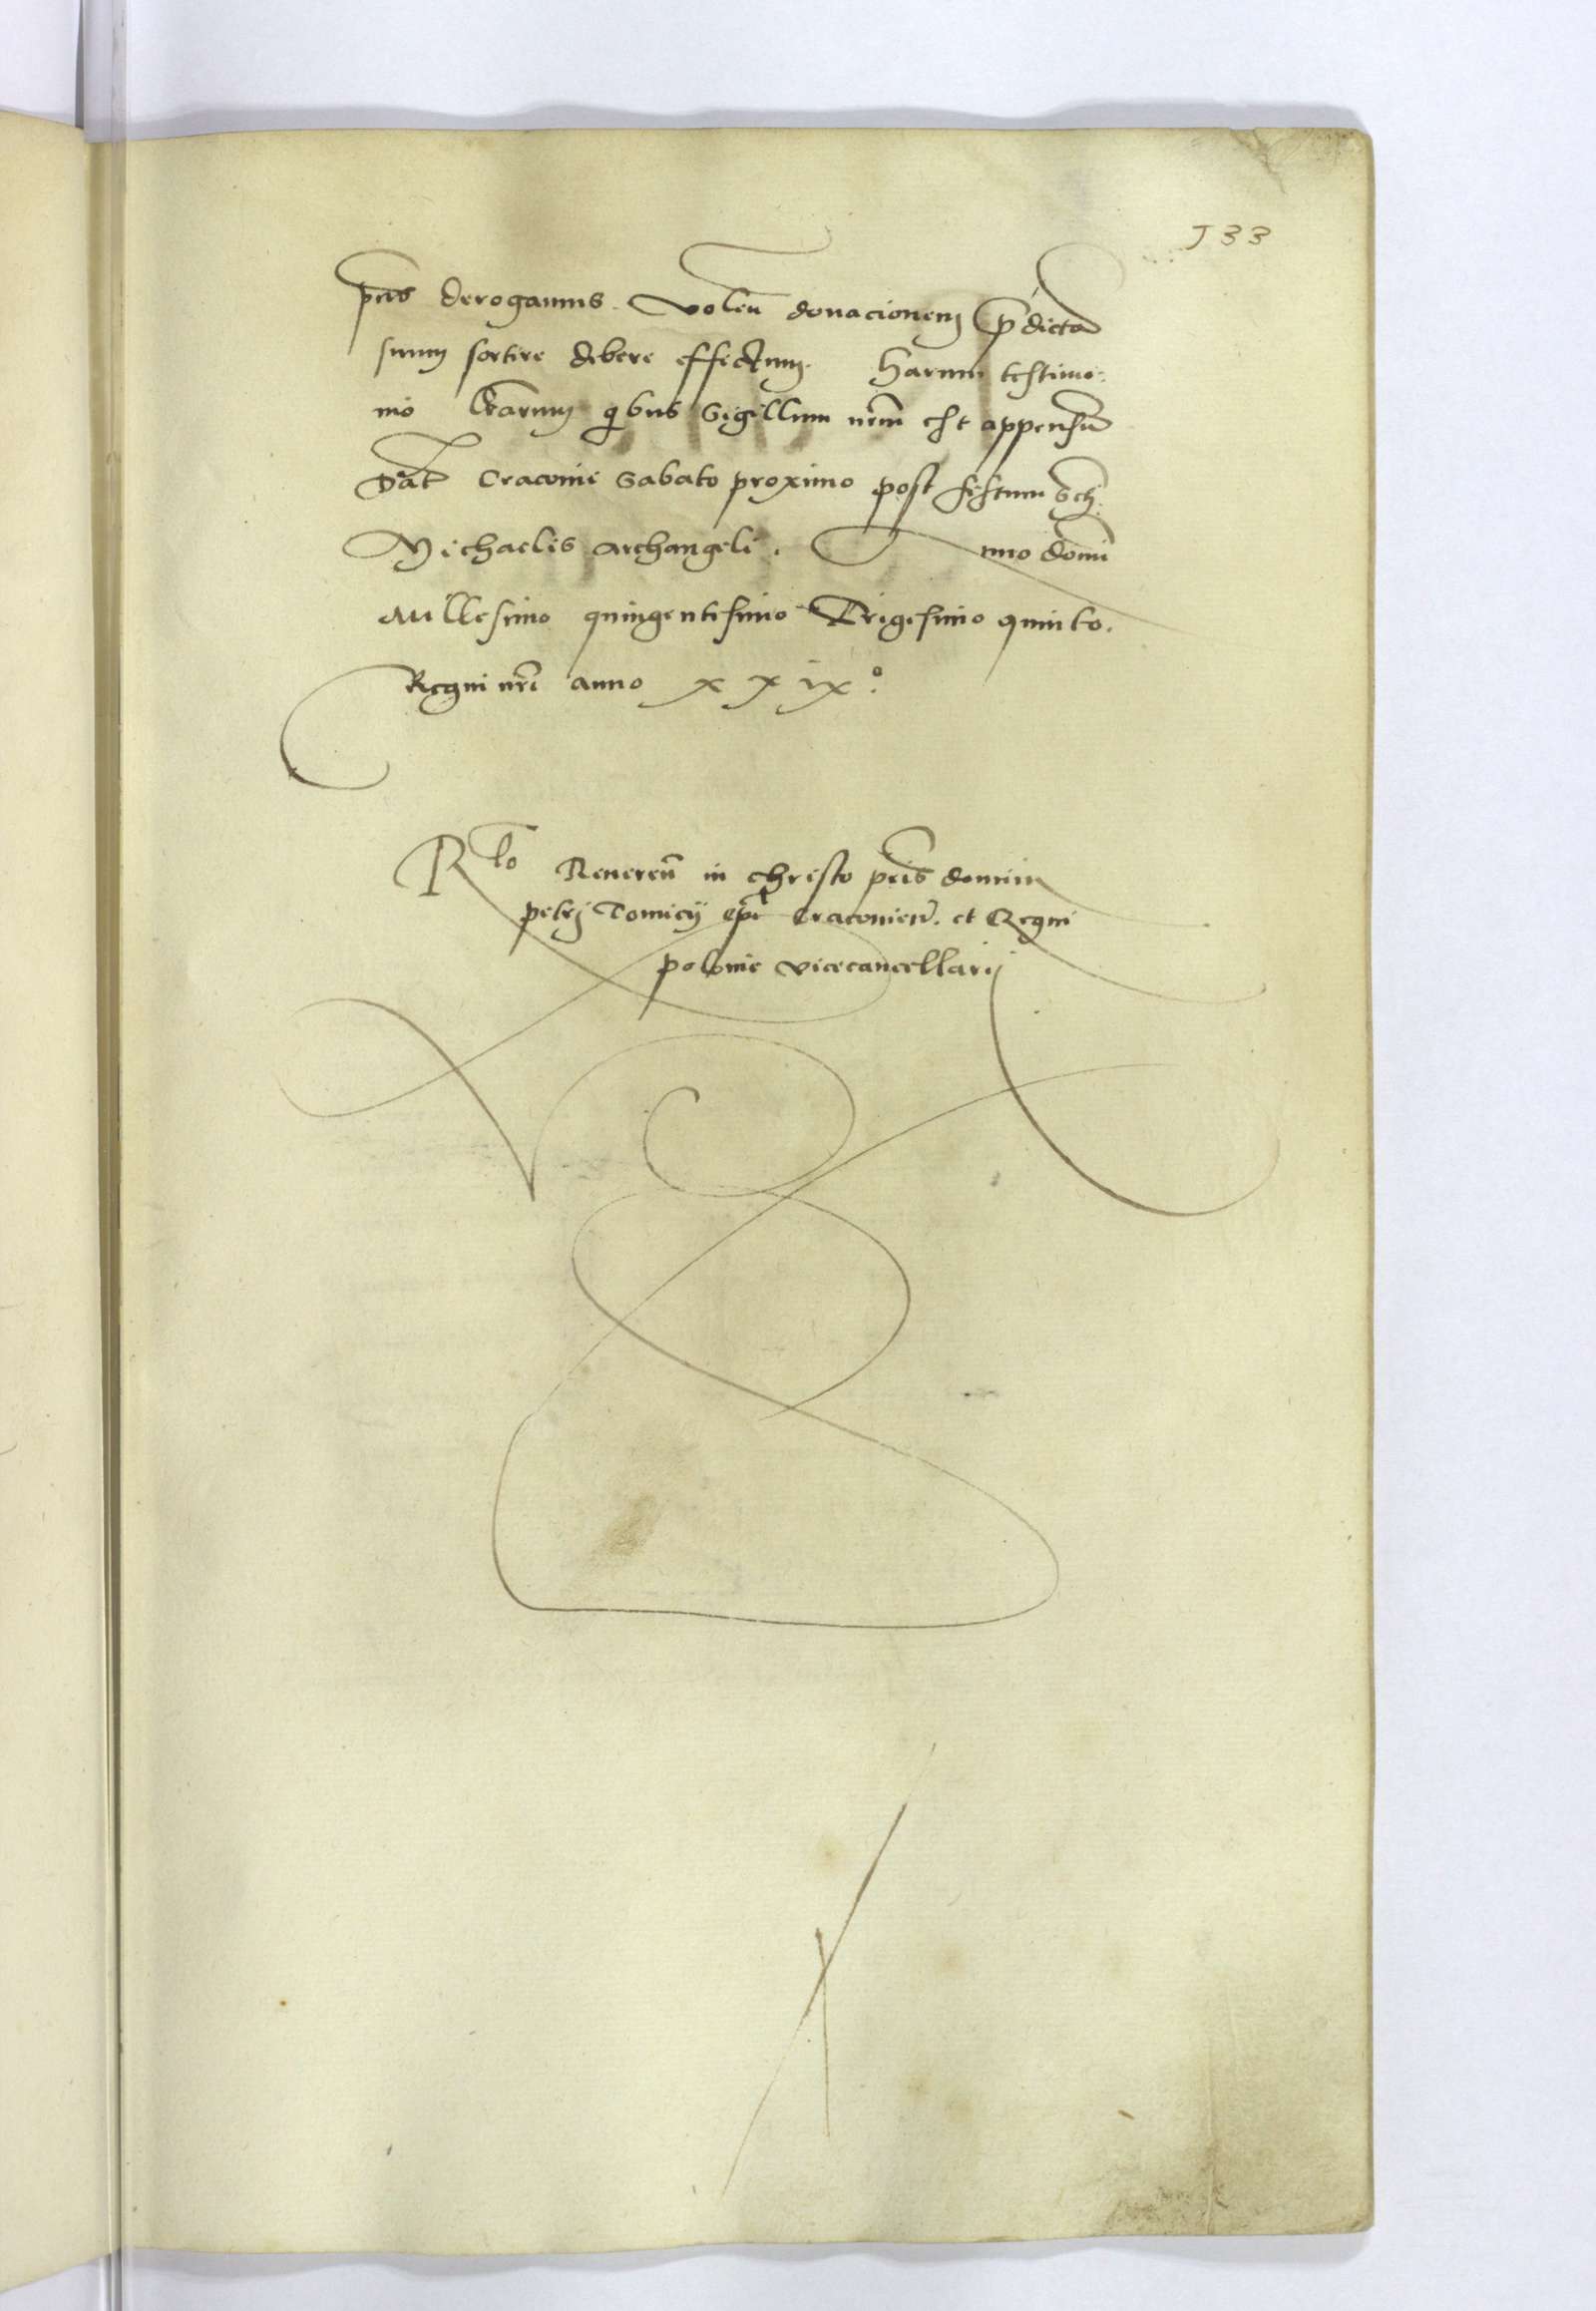 133
pn̄tibus derogamus. Volen̄ donacionem p̄dictā
suum sortire debere effectum. Harum testimo-
nio l̄rarum qibus Sigillum nr̄m est appensū
Dat̄ Cracovie Sabato proximo post festum Scti
Michaelis Archangeli. Anno domī
Millesimo quingentesimo Trigesimo quinto.
Regni nr̄i anno xxix°.
Rlo Reveren̄ in christo pr̄is domini
petrj Tomicij ep̄i Cracovien̄. et Regni
polonie vicecancellarij